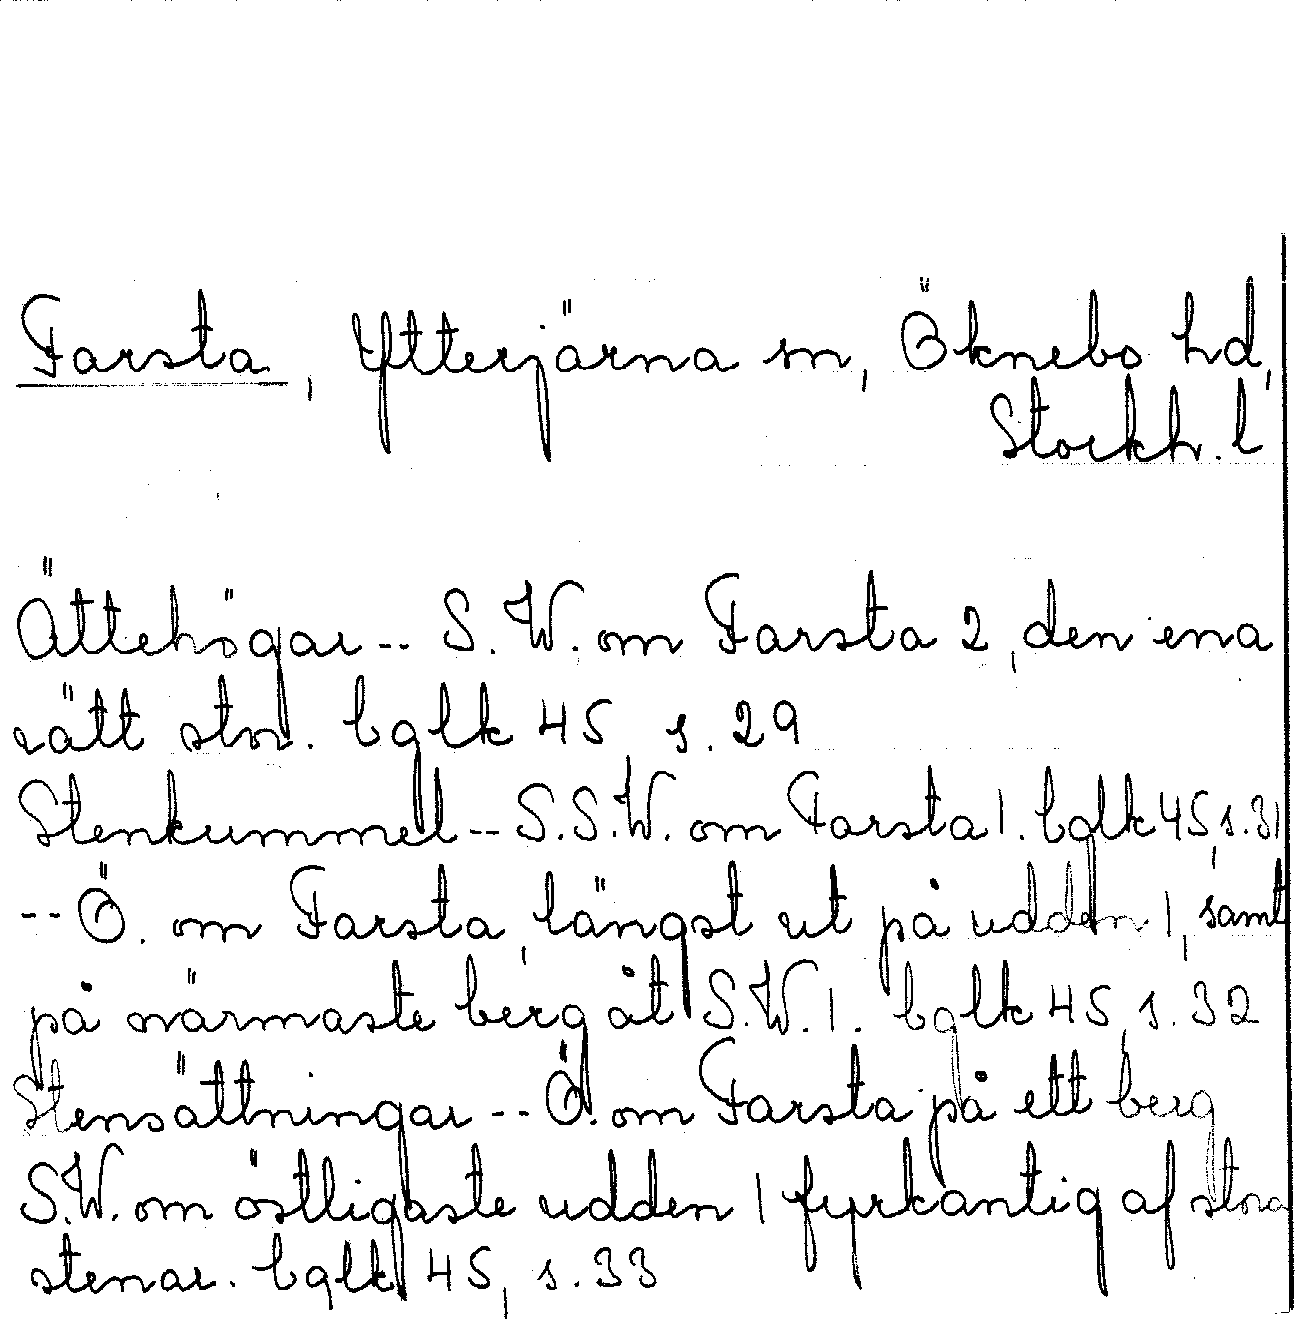 Farsta, Ytterjärna sn, Öknebo hd,
Stockh. l
Ättehögar -- S.W. om Farsta 2, den ena
rätt stor. bglk 45 s. 29
Stenkummel -- S.S.W. om Farsta 1. bglk 45, s. 31
-- Ö. om Farsta, längst ut på udden 1, samt
på närmaste berg åt S.W. 1. bglk 45, s. 32
Stensättningar -- Ö. om Farsta på ett berg
S.W. om östligaste udden 1 fyrkantig af stora
stenar. bglk 45, s. 33